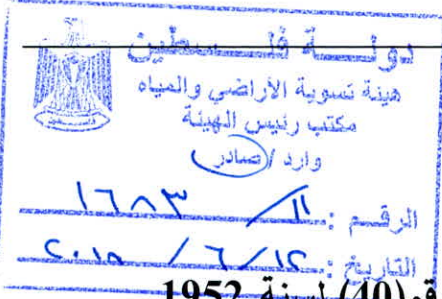 دولة فلسطين
هيئة تسوية الأراضي والمياه
مكتب رئيس الهيئة
وارد / صادر
الرقم : ١١/ ١٦٨٣
التاريخ : ١٢/ ٦ / ٢٠١٨
(40) لسنة 1952